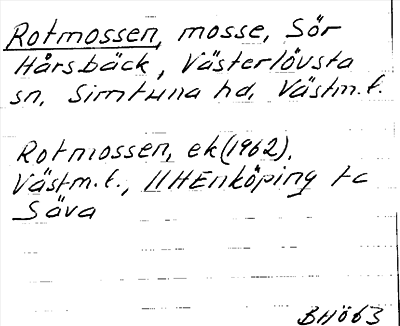 Rotmossen, mosse, Sör
Hårsbäck, Västerlövsta
sn, Simtuna hd, Västm.l.
Rotmossen, ek (1962),
Västm.l., 11HEnköping tc
Säva
BHö63